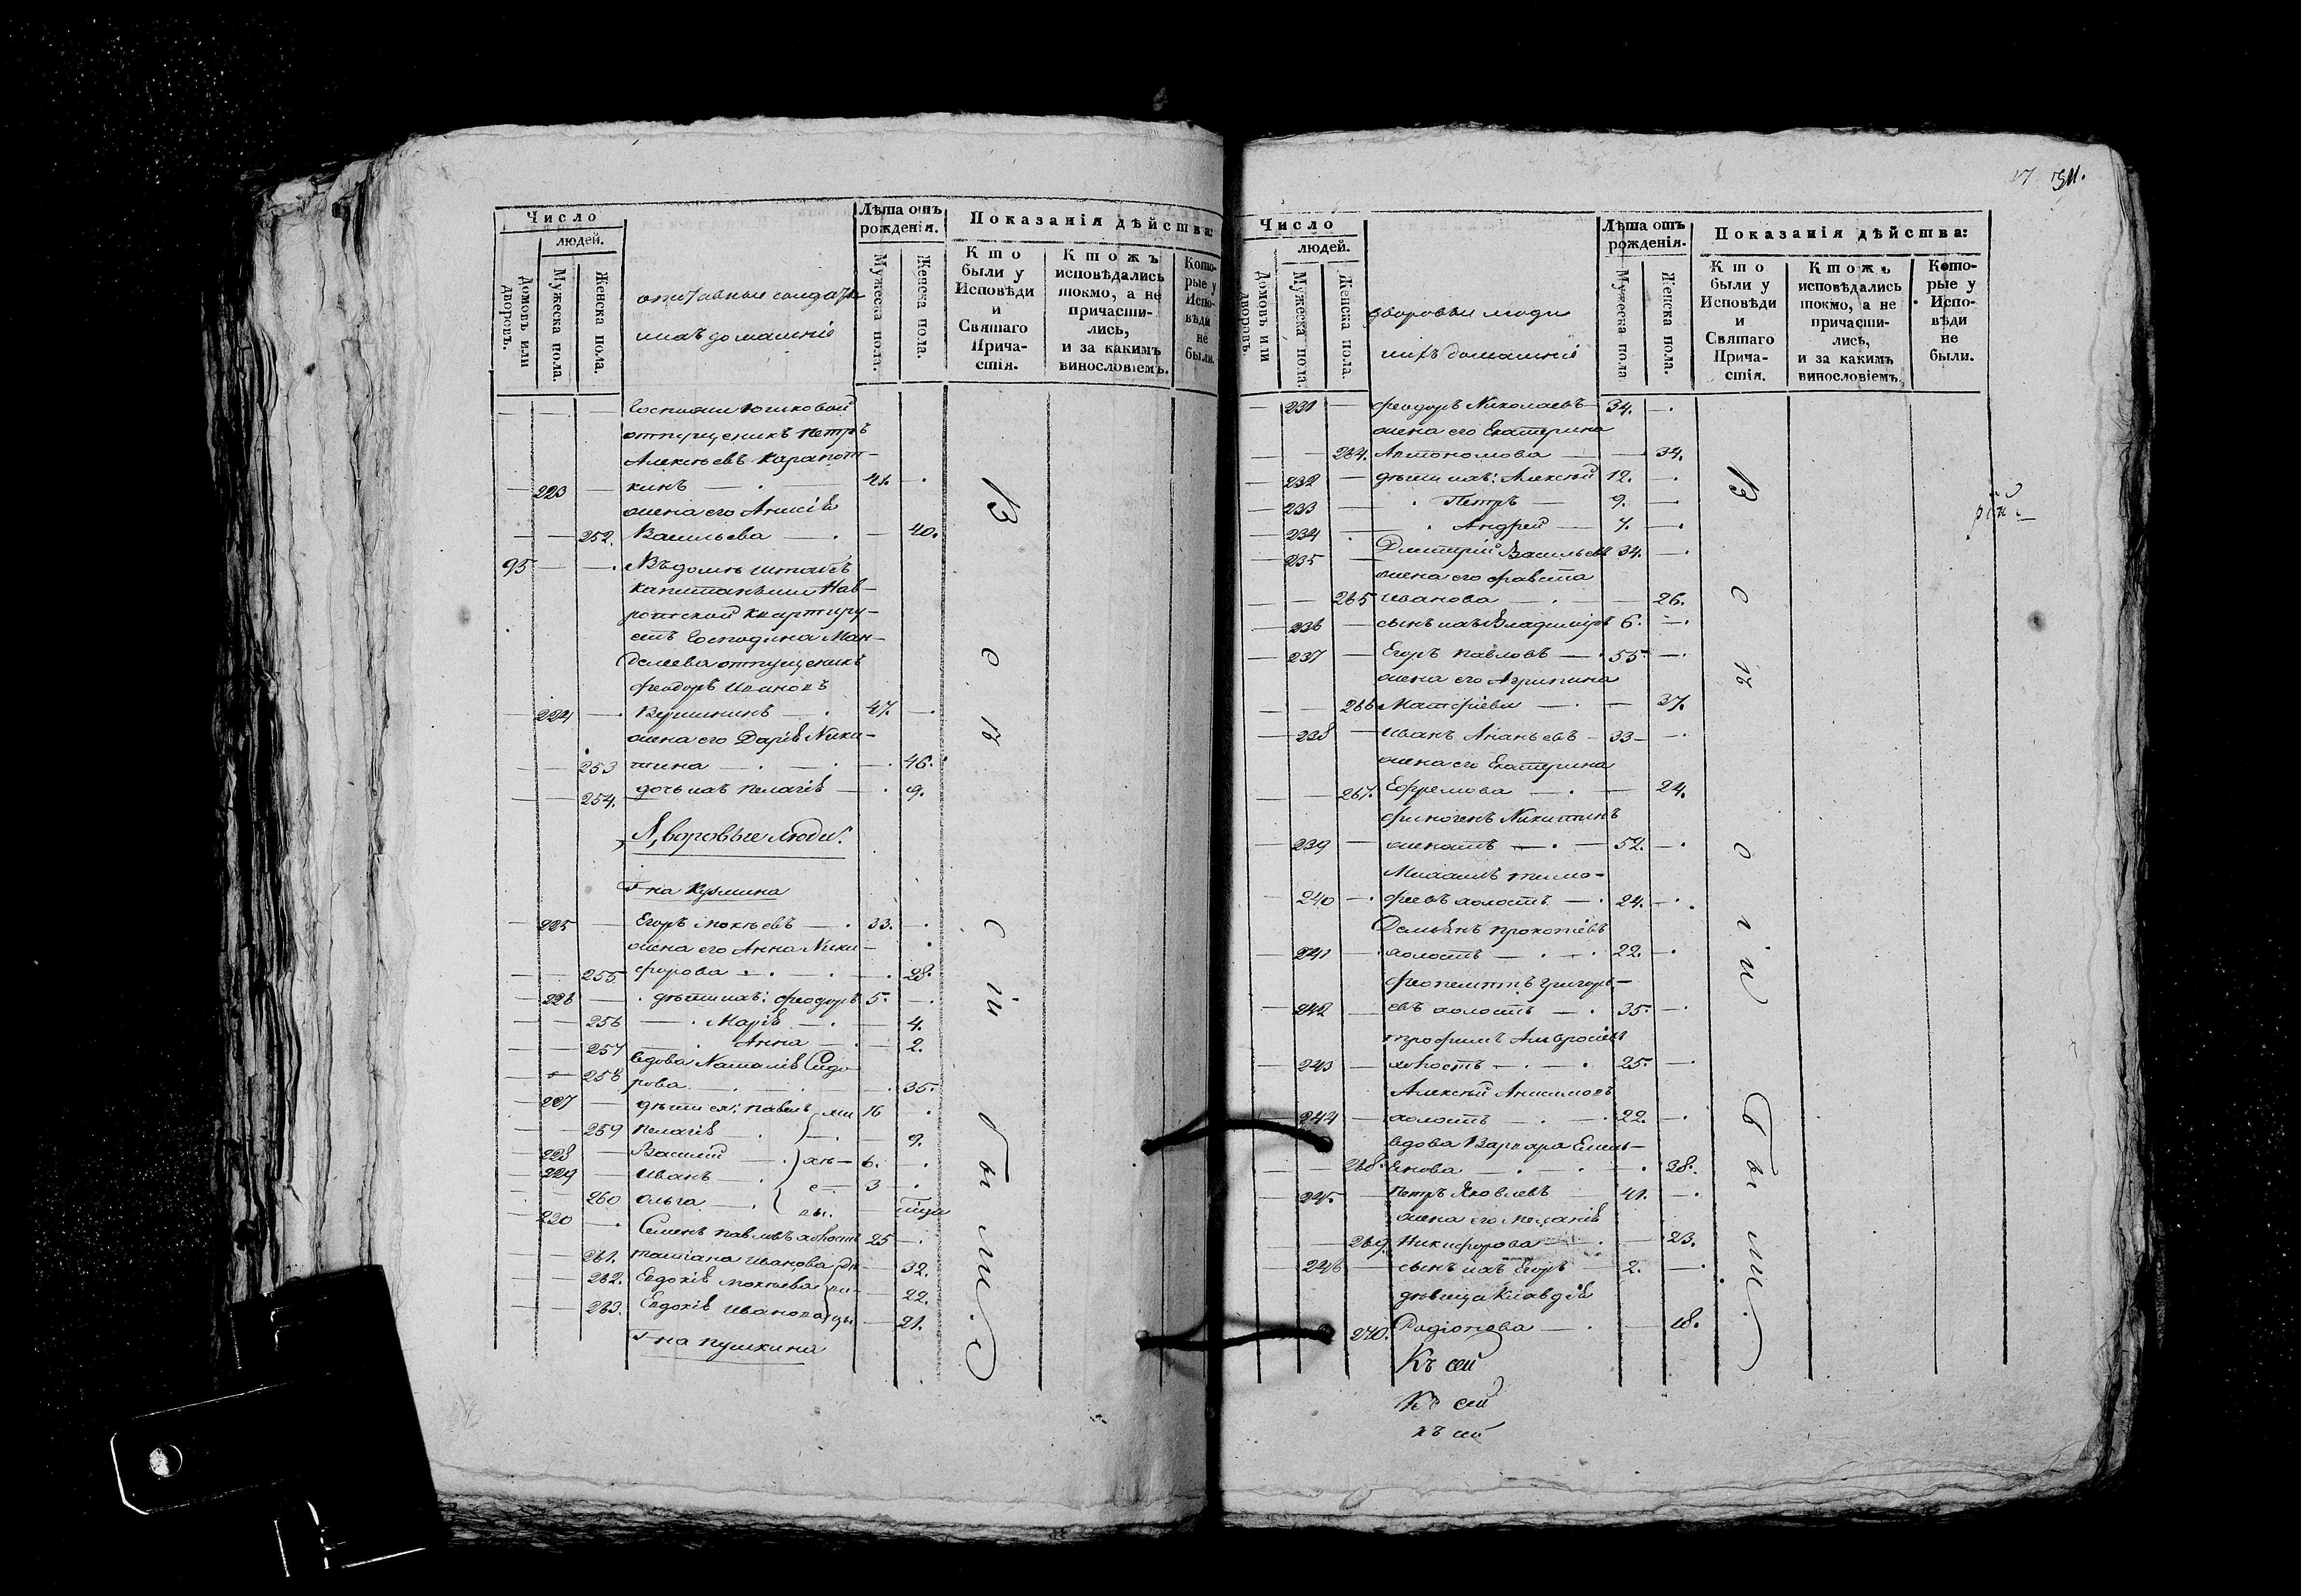 Число
людей.
Домовъ или дворовъ.
Мужеска пола.
Женска пола.
отставные солдаты
ихъ домашніе
Лѣта отъ рожденія.
Мужеска пола.
Женска пола.
Показанія дѣйства:
Кто были у Исповѣди и Святаго Прича-стія.
Ктожъ исповѣдались токмо, а не причасти-лись, и за какимъ винословіемъ.
Кото-рые у Испо-вѣди не были.
Госпожи
отпущеникъ Петръ
Алексѣевъ Карапот-
223 кинъ 41.
жена его
252. Васильева 40.
95 Въ домѣ штабсъ
капитанши Нав-
роцкой квартиру-
етъ Господина Ман-
отпущеникъ
Феодоръ Ивановъ
224 Вершининъ 47.
жена его Дарія Ники-
253 тина 46.
254. дочь ихъ Пелагія 9.
Дворовые люди.
Г-на Кузмина
225 Егоръ Мокѣевъ 33.
жена его Анна Ники-
255 форова 28.
226 дѣти ихъ: Феодоръ 5.
256 Марія 4.
257 Анна 2.
вдова Наталія Сидо
258 рова 35.
227 дѣти ея: Павелъ 16
259 Пелагія 9.
228 Василій 6.
229 Иванъ 3
260 Ольга
230 Семенъ Павловъ холостъ 25
261. Татіана Иванова 32.
262. Евдокія Мокѣева 22.
263. Евдокія Иванова 21.
Г-на Пушкина
Всѣ сіи были.
311.
Число
людей.
Домовъ или дворовъ.
Мужеска пола.
Женска пола.
дворовыи люди
ихъ домашніе
Лѣта отъ рожденія.
Мужеска пола
Женска пола.
Показанія дѣйства:
Кто были у Исповѣди и Святаго Прича-стія.
Ктожъ исповѣдались токмо, а не причасти-лись, и за какимъ винословіемъ.
Кото-рые у Испо-вѣди не были.
231 Феодоръ Николаевъ 34.
жена его Екатерина
264. Автономова 34.
232 дѣти ихъ: Алексѣй 12.
233 Петръ 9.
234 Андрей 7.
235 Дмитрій Васильевъ 34.
жена его
265 Иванова 26.
236 сынъ ихъ Владиміръ 6.
237 Егоръ Павловъ 55.
жена его Агрипина
266 Матфіева 37.
238 Иванъ Ананьевъ 33
жена его Екатерина
267. Ефремова 24.
Финогенъ Никитинъ
239 женатъ 52.
Михаилъ Тимо-
240 феевъ холостъ 24.
Демьянъ Прокопіевъ
241 холостъ 22.
Феопемптъ Григорь-
242 евъ холостъ 35.
Трофимъ Амвросіевъ
243 холостъ 25.
Алексѣй Анисимовъ
244 холостъ 22.
вдова Варвара Емель-
268. янова 38.
245. Петръ Яковлевъ 41.
жена его Меланія
269. Никифорова 23.
246 сынъ ихъ Егоръ 2.
дѣвица Клавдія
270. Родіонова 18.
Всѣ сіи были.
Къ сей
Къ сей
къ сей